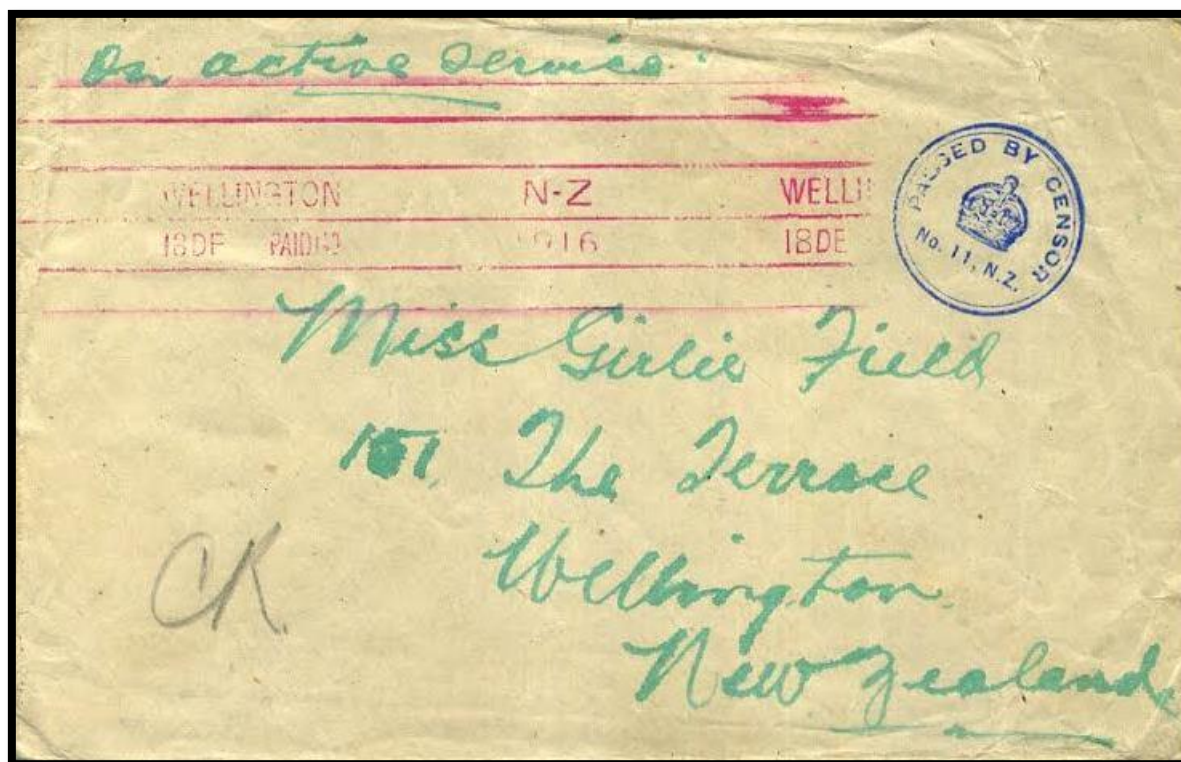 On active Service.
WELLINGTON N-Z WELLI
18DE PAID 1916 18DE
PASSED BY CENSOR
No. 11, N.Z.
Miss Girlie Field
The Terrace
Wellington
New Zealand
CK